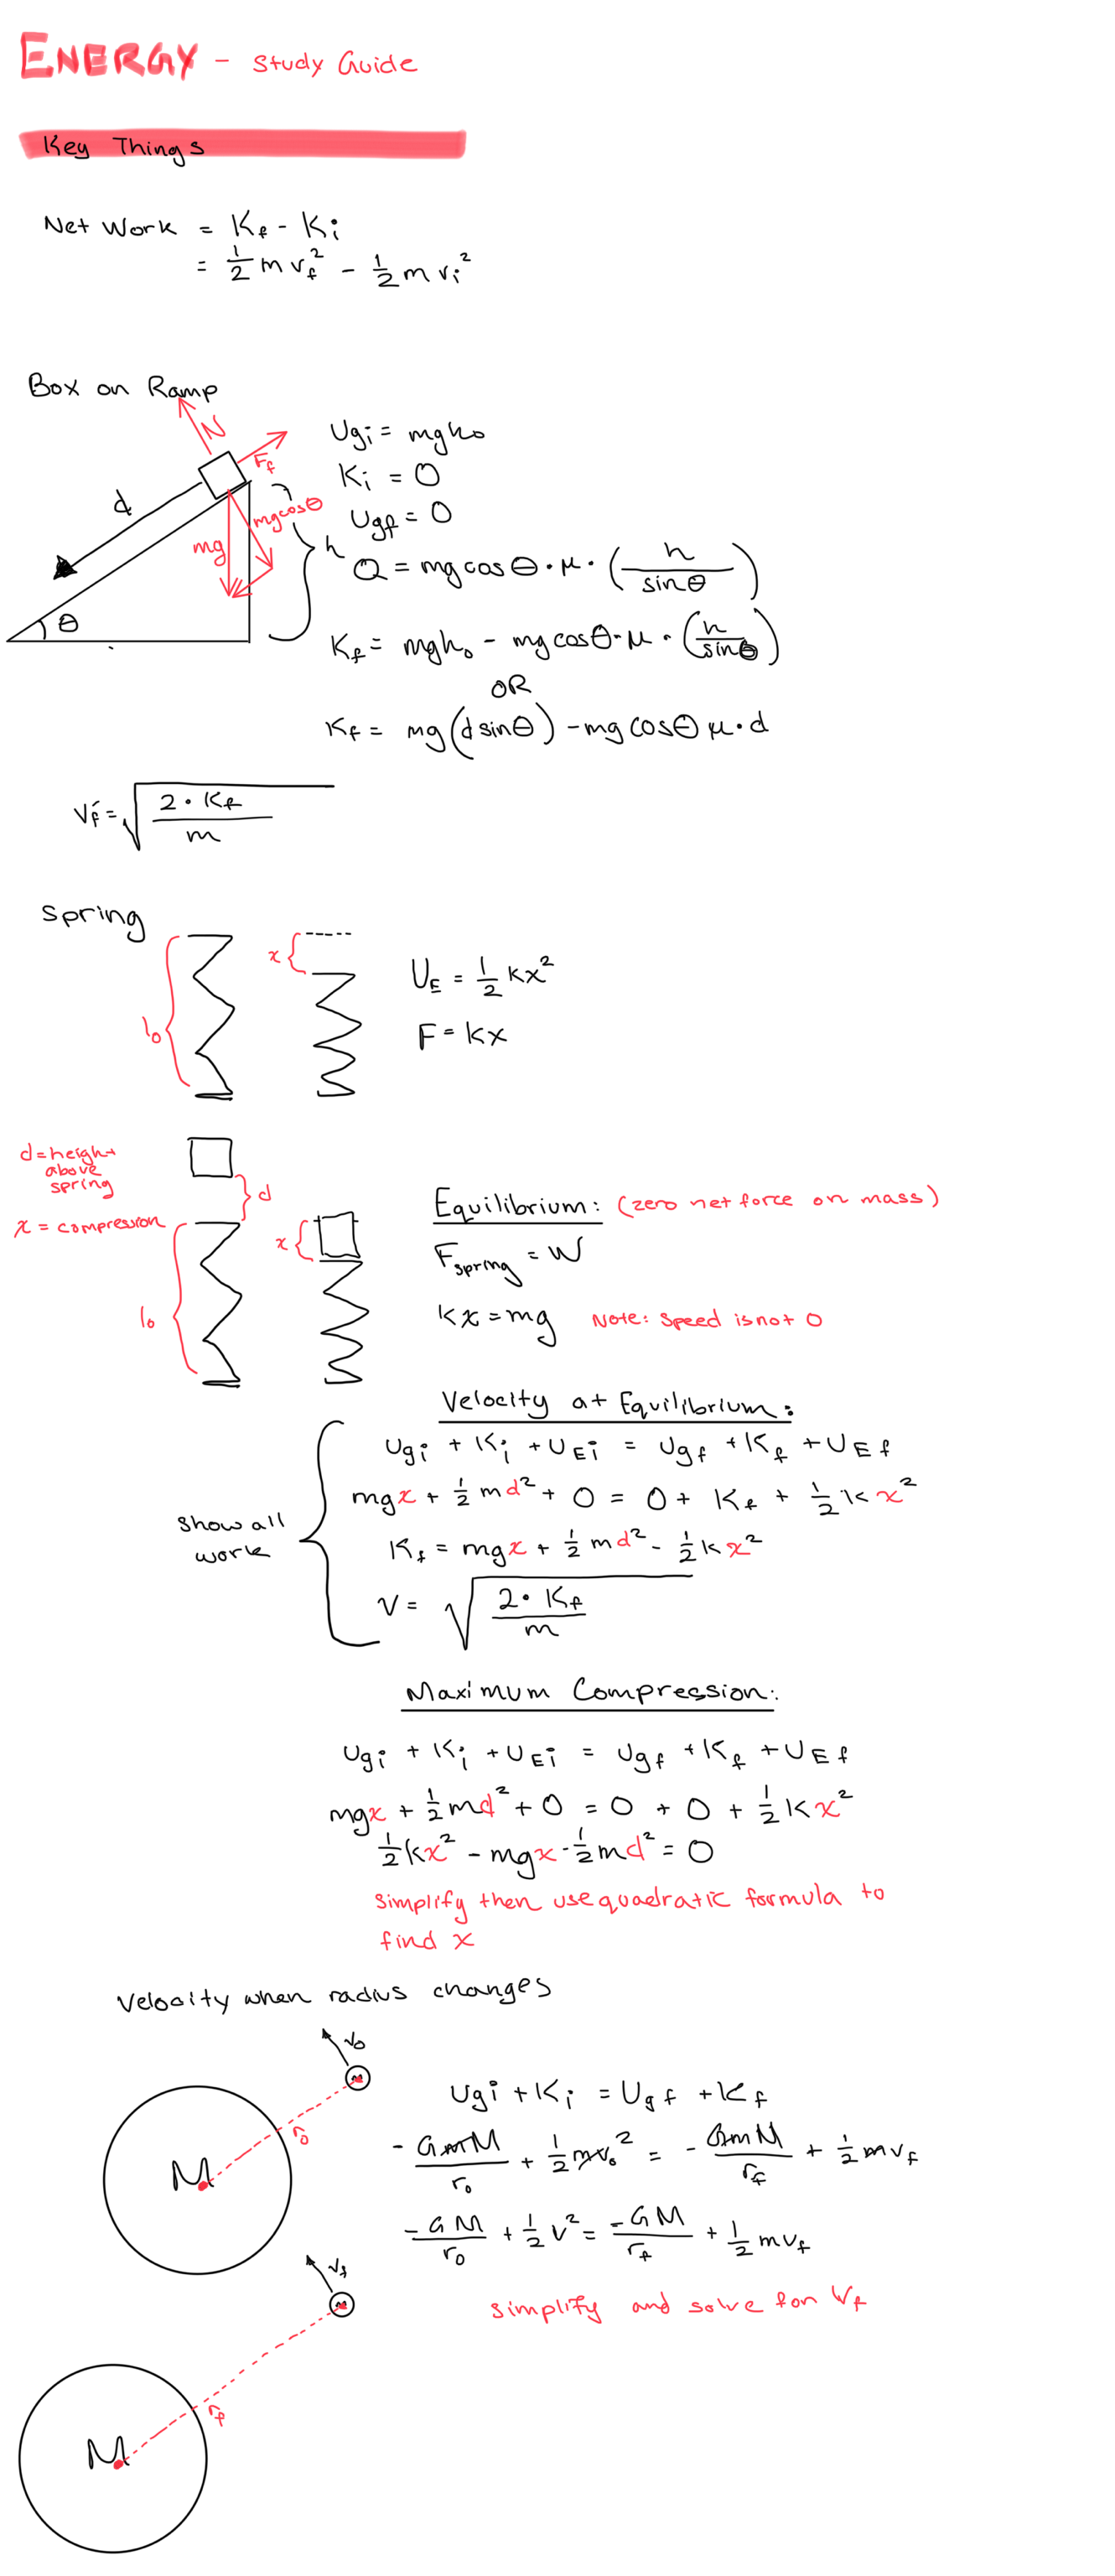 ENERGY - Study Guide
Key Things
Net Work = K_f - K_i
= 1/2 m v_f² - 1/2 m v_i²
Box on Ramp
N
F_f
d
mg cosθ
mg
h
θ
U_gi = mgh₀
K_i = 0
U_gf = 0
Q = mg cosθ · μ · (h / sinθ)
K_f = mgh₀ - mg cosθ · μ · (h / sinθ)
OR
K_f = mg(d sinθ) - mg cosθ μ · d
v_f = √(2 · K_f / m)
Spring
l₀
x
U_E = 1/2 kx²
F = kx
d = height
above
spring
x = compression
d
x
l₀
Equilibrium: (zero net force on mass)
F_spring = W
kx = mg Note: Speed is not 0
Velocity at Equilibrium:
U_gi + K_i + U_Ei = U_gf + K_f + U_Ef
mgx + 1/2 md² + 0 = 0 + K_f + 1/2 kx²
Show all
work
K_f = mgx + 1/2 md² - 1/2 kx²
V = √(2 · K_f / m)
Maximum Compression:
U_gi + K_i + U_Ei = U_gf + K_f + U_Ef
mgx + 1/2 md² + 0 = 0 + 0 + 1/2 kx²
1/2 kx² - mgx - 1/2 md² = 0
Simplify then use quadratic formula to
find x
Velocity when radius changes
v₀
m
r₀
M
U_gi + K_i = U_gf + K_f
- GmM/r₀ + 1/2 mv₀² = - GmM/r_f + 1/2 mv_f
-GM/r₀ + 1/2 v² = -GM/r_f + 1/2 mv_f
Simplify and solve for V_f
v_f
m
r_f
M